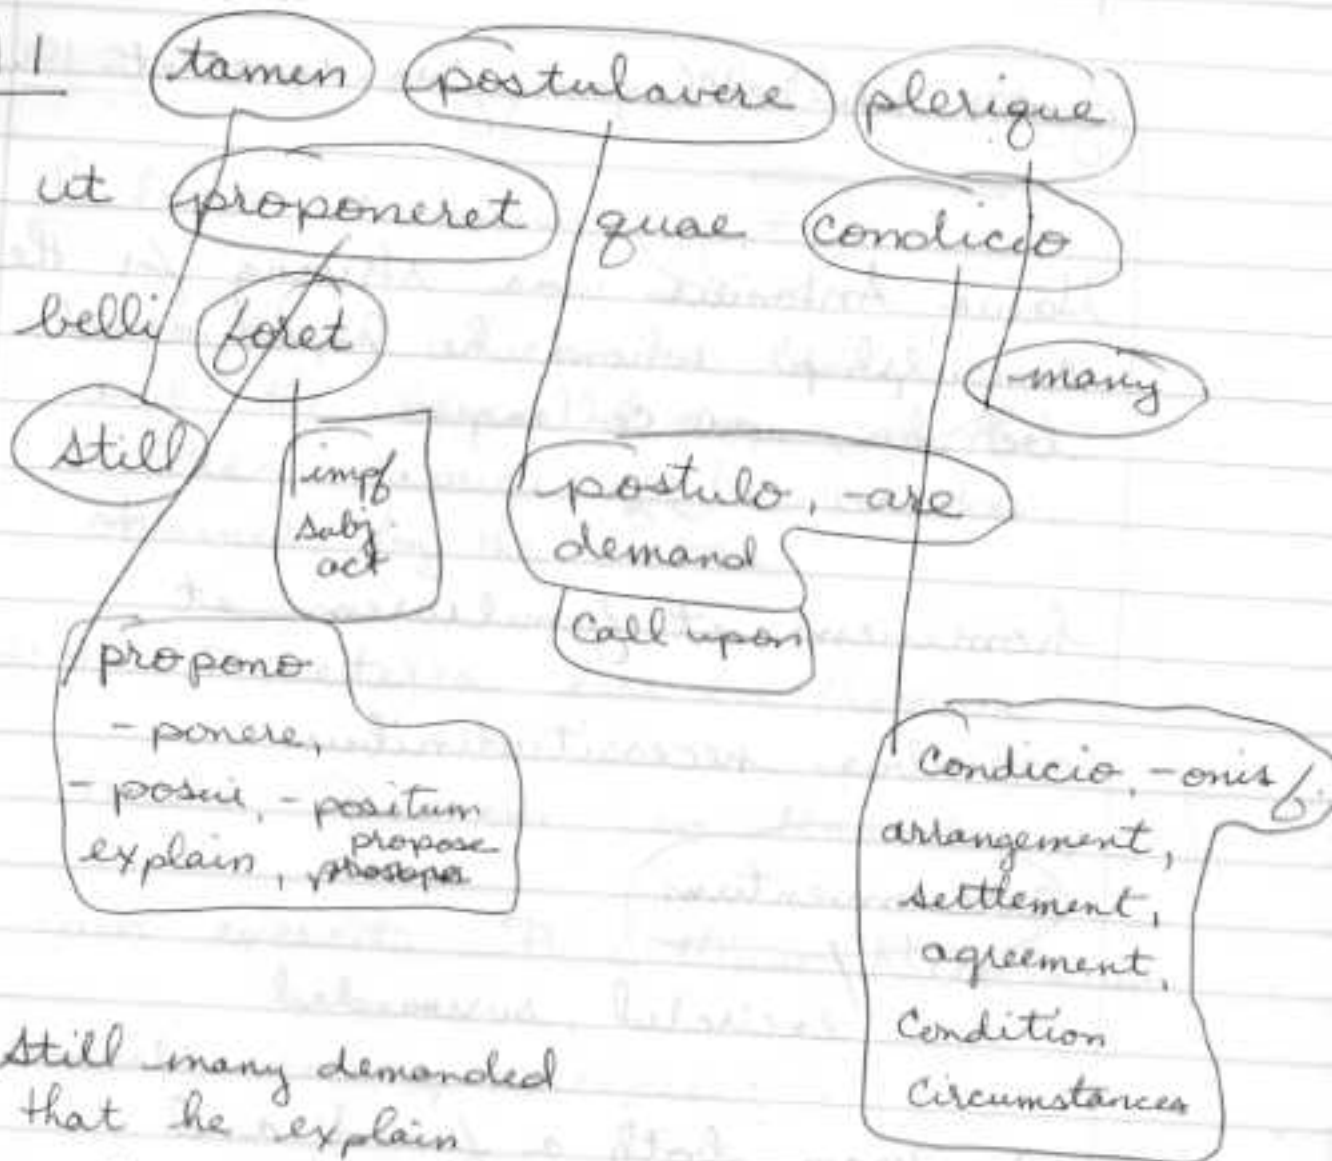 1 tamen postulavere plerique
ut proponeret quae condicio
belli foret
many
still
impf
subj.
act
postulo, -are
demand
call upon
propono
- ponere,
- posui, - positum
explain, propose
condicio, -onis f.
arrangement,
settlement,
agreement,
condition
circumstances
Still many demanded
that he explain